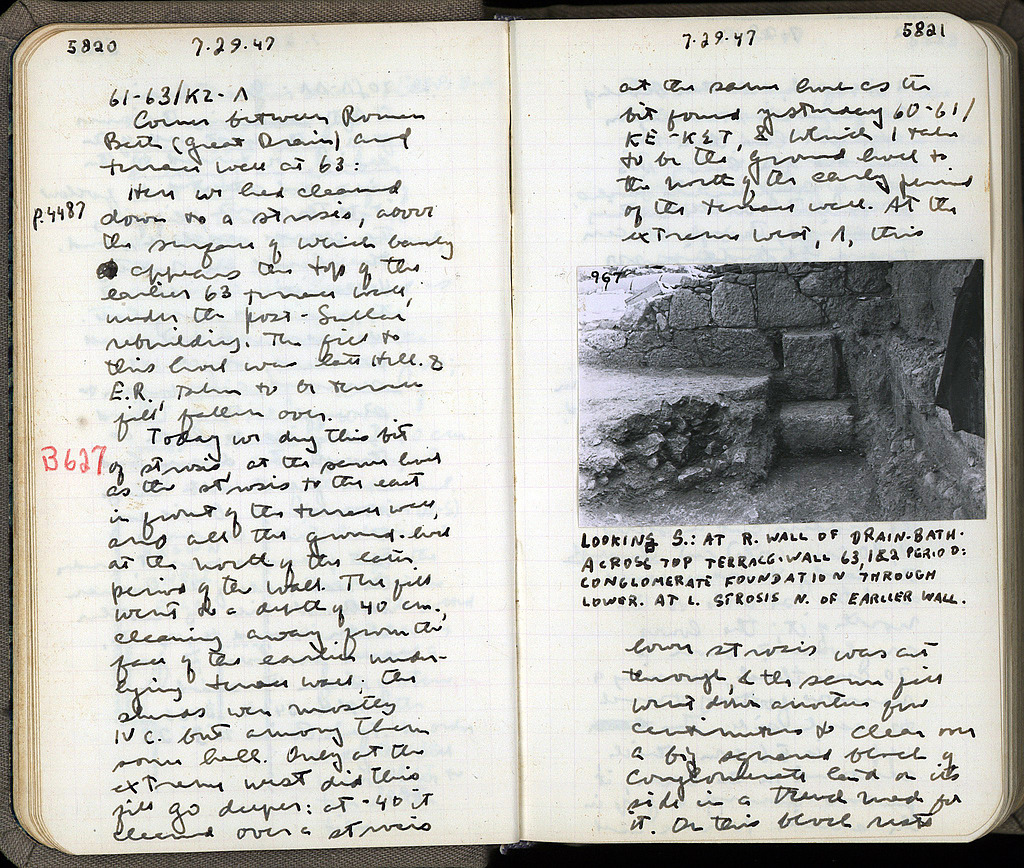 5820
7.29.47
61-63/ΚΖ-Λ
Corner between Roman
Bath (Great Drain) and
terrace wall at 63:
Here we had cleaned
P.4487
down to a strosis, above
the surface of which barely
appears the top of the
earlier 63 terrace wall,
under the post-Sullan
rebuilding. The fill to
this level was late Hell. &
E.R. taken to be terrace
fill fallen over.
Today we dug this bit
B627
of strosis, at the same level
as the strosis to the east
in front of the terrace wall,
and all the ground-level
at the north of the later
period of the wall. The fill
went to a depth of 40 cm.,
cleaning away from the
face of the earlier under-
lying terrace wall; the
sherds were mostly
IV c. but among them
some hell. Only at the
extreme west did this
fill go deeper: at -40 it
cleaned over a strosis
5821
7.29.47
at the same level as the
bit found yesterday 60-61/
ΚΕ-ΚΣΤ, & which I take
to be the ground level to
the north of the early period
of the terrace wall. At the
extreme west, Λ, this
967
LOOKING S.: AT R. WALL OF DRAIN-BATH.
ACROSS TOP TERRACE-WALL 63, 1&2 PERIOD:
CONGLOMERATE FOUNDATION THROUGH
LOWER. AT L. STROSIS N. OF EARLIER WALL.
lower strosis was cut
through, & the same fill
went down another few
centimeters to clean over
a big squared block of
conglomerate laid on its
side in a trench made for
it. On this block rests